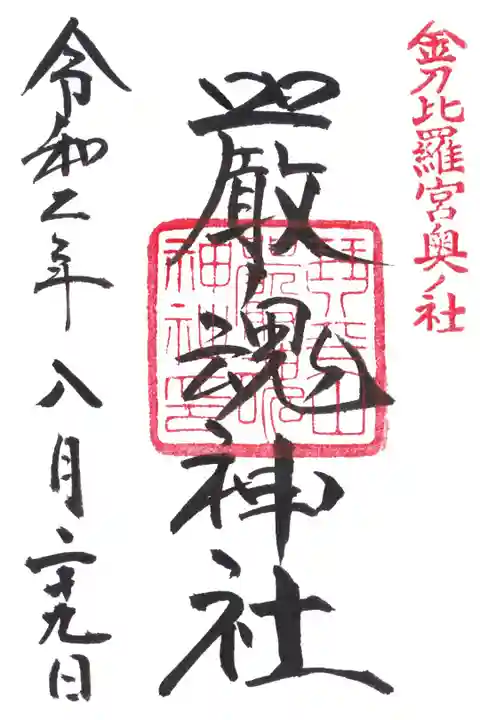 金刀比羅宮奥ノ社
厳魂神社
令和二年八月二十九日